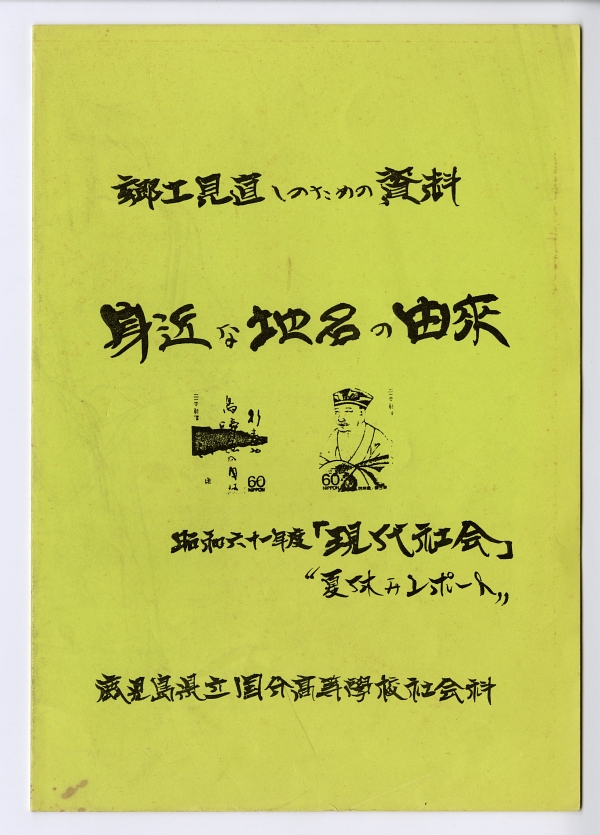 郷土見直しのための資料
身近な地名の由来
60
NIPPON
60
NIPPON
昭和六十一年度「現代社会」
“夏休みレポート”
鹿児島県立国分高等學校社会科